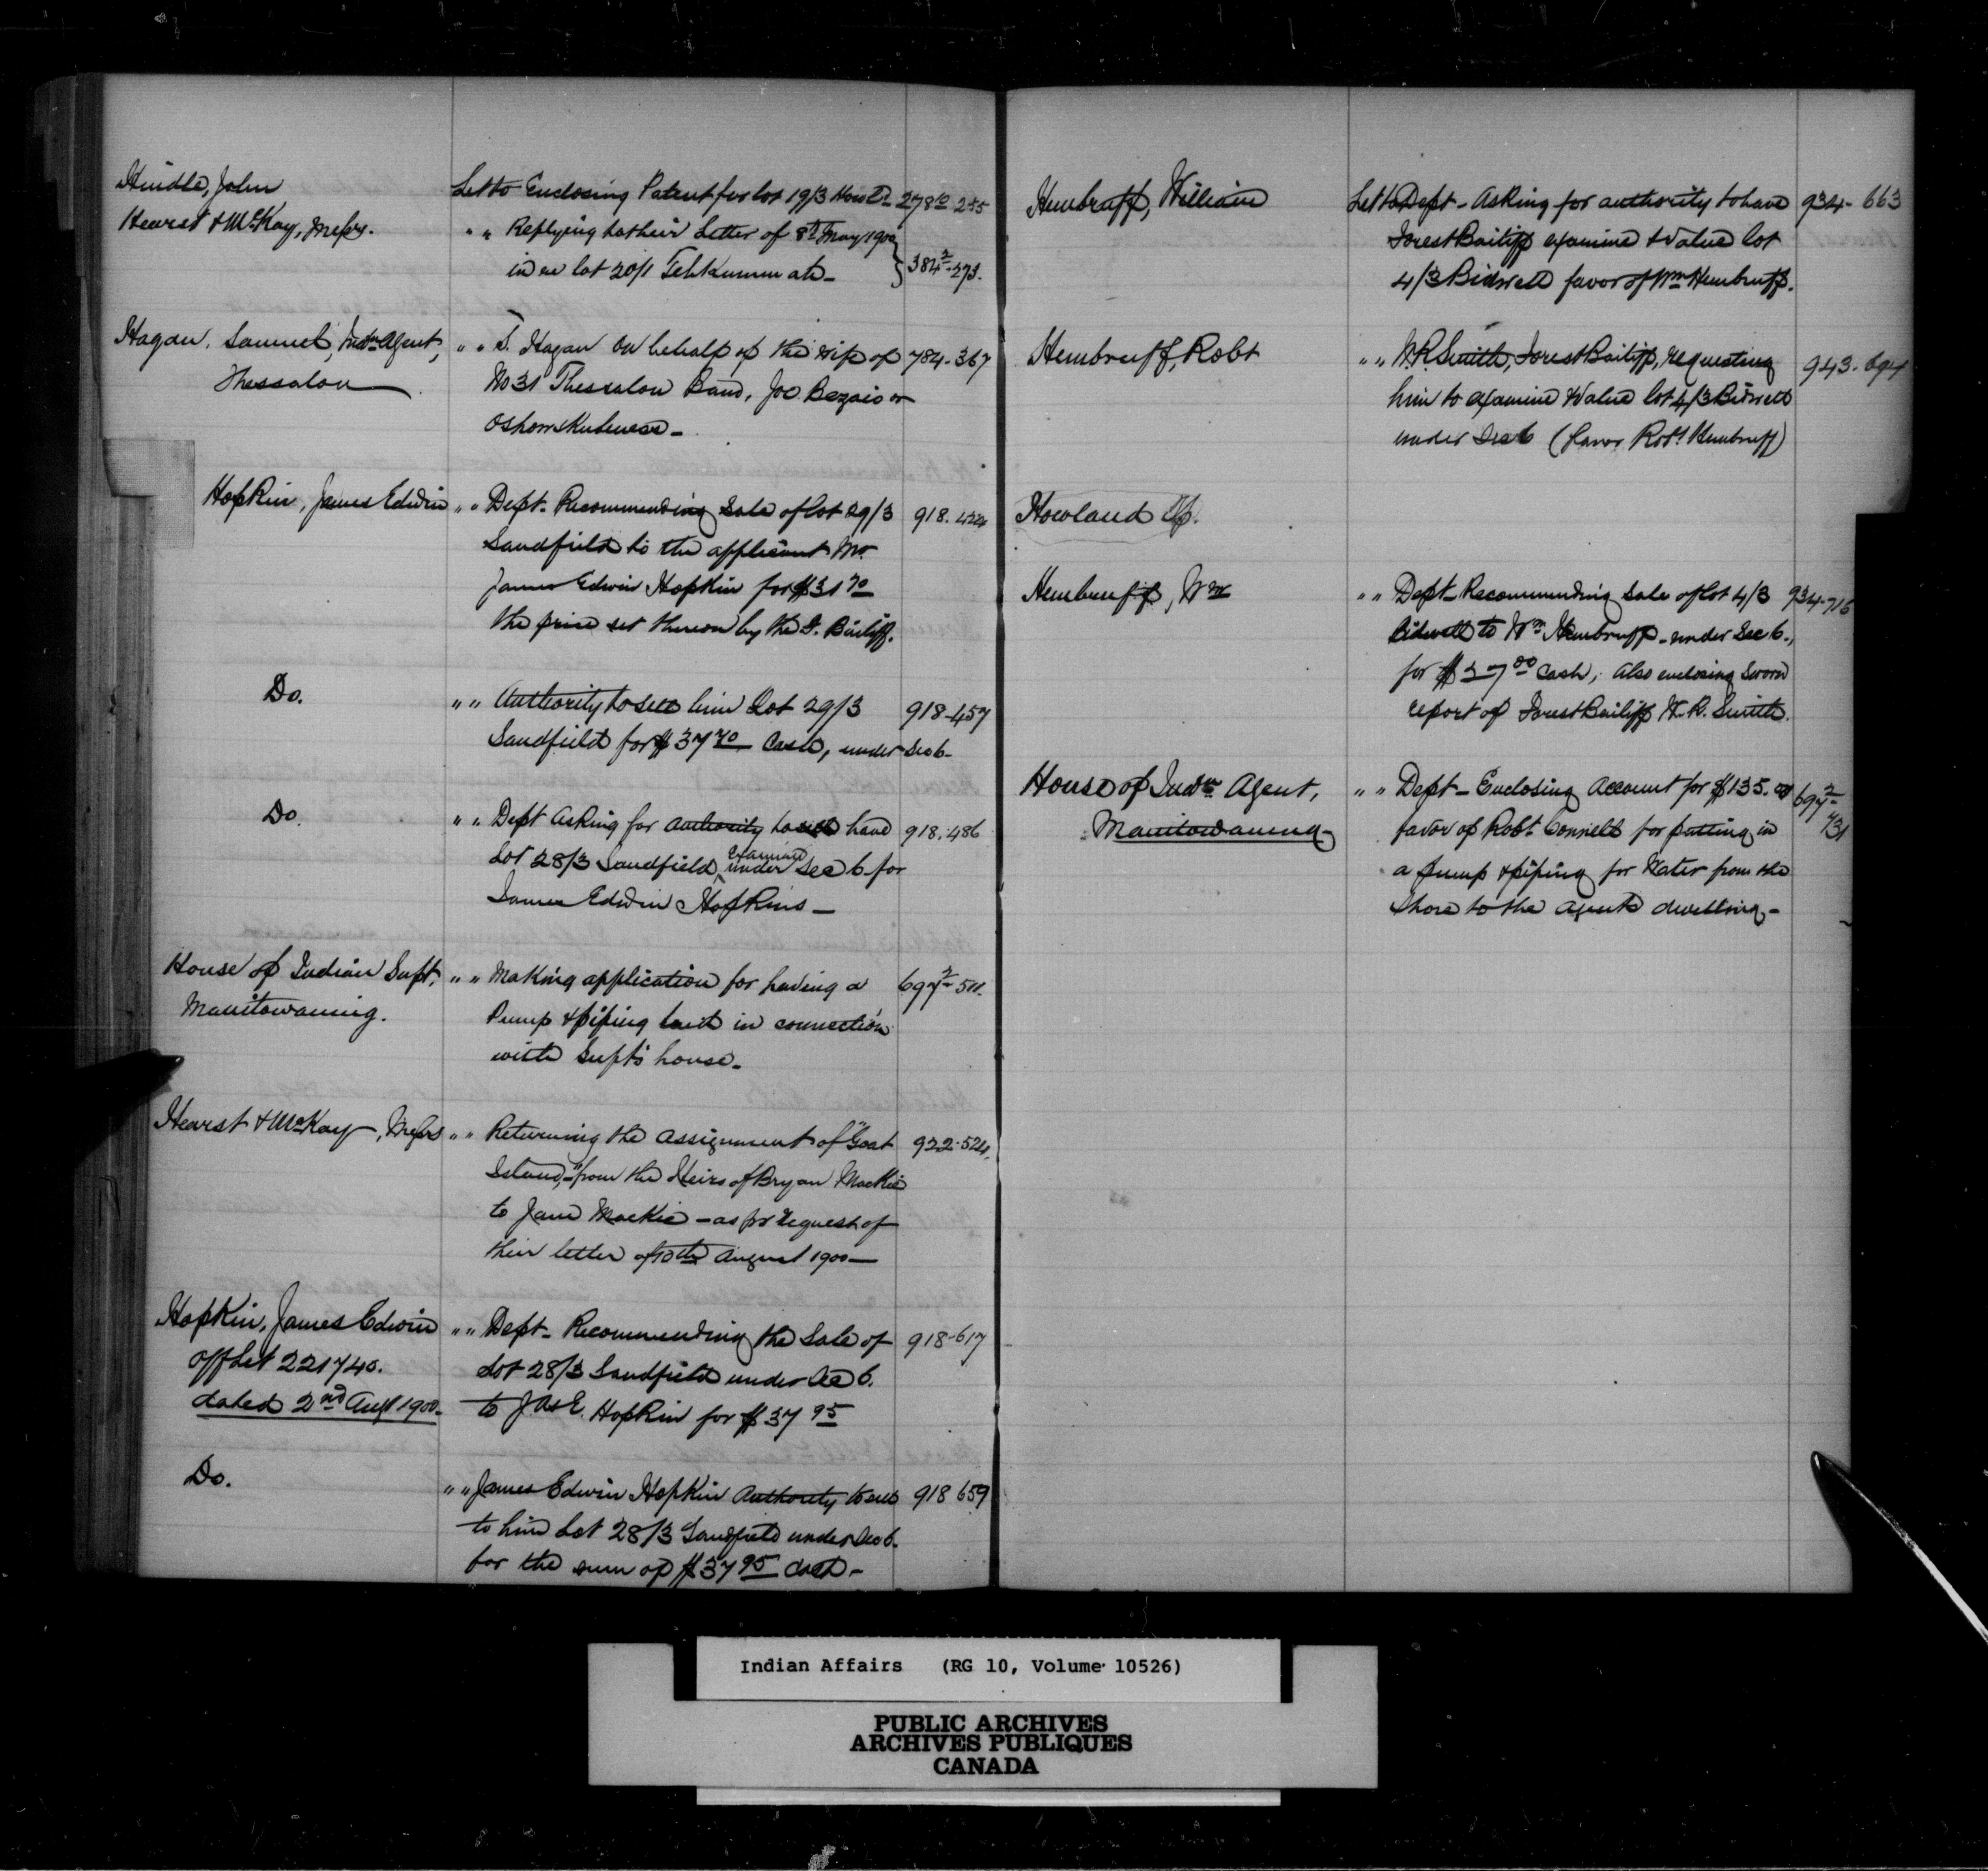 Hindle, John Let to Enclosing Patent for lot 19/3 How'd 278 12 255
Hearst & McKay, Messrs. " " Replying to their Letter of 8th May 1900
in re lot 20/1 Tehkummah - 384 2 - 273.
Hagan, Samuel, Indn Agent, " " S. Hagan on behalf of the wife of 784-367
Thessalon No 31 Thessalon Band, Joe
Hopkin, James Edwin " " Dept. Recommending Sale of lot 29/3 918. 424
Sandfield to the applicant Mr.
James Edwin Hopkin for $37 70
the price set thereon by the F. Bailiff.
Do. " " Authority to sell him Lot 29/3 918-457
Sandfield for $37 70 Cash, under Sec 6-
Do. " " Dept asking for authority to have 918.486
Lot 28/3 Sandfield, examined under Sec 6 for
James Edwin Hopkins -
House of Indian Supt, " " Making application for having a 697 2 - 511.
Manitowaning. Pump & piping laid in connection
with Supt's house.
Hearst & McKay, Messrs " " Returning the assignment of "Goat 922-524.
Island," from the Heirs of Bryan Mackie
to Jane Mackie - as pr request of
their letter of 10th August 1900 -
Hopkin, James Edwin " " Dept. Recommending the Sale of 918-617
Off Let 221740. Lot 28/3 Sandfield under Sec 6.
dated 2nd Augt 1900. to Jas E. Hopkin for $37 95
Do. " " James Edwin Hopkin Authority to sell 918 659
to him Lot 28/3 Sandfield under Sec 6.
for the sum of $37 95 Cash -
Hembruff, William Let to Dept - Asking for authority to have 934- 663
Forest Bailiff examine & value lot
4/3 Bidwell favor of Wm Hembruff.
Hembruff, Robt " " W. R. Smith, Forest Bailiff, requesting 943- 694
him to examine & Value lot 4/3 Bidwell
under Sec 6 (favor Robt Hembruff)
Howland Tp.
Hembruff, Wm " " Dept - Recommending Sale of lot 4/3 934-716
Bidwell to Wm Hembruff - under Sec 6.,
for $ 37 00 Cash; also enclosing Sworn
report of Forest Bailiff W. R. Smith.
House of Indn Agent, " " Dept - Enclosing Account for $135.00 697 2 -
Manitowaning favor of Robt for putting in 731
a pump & piping for Water from the
shore to the Agents dwelling -
Indian Affairs (RG 10, Volume 10526)
PUBLIC ARCHIVES
ARCHIVES PUBLIQUES
CANADA